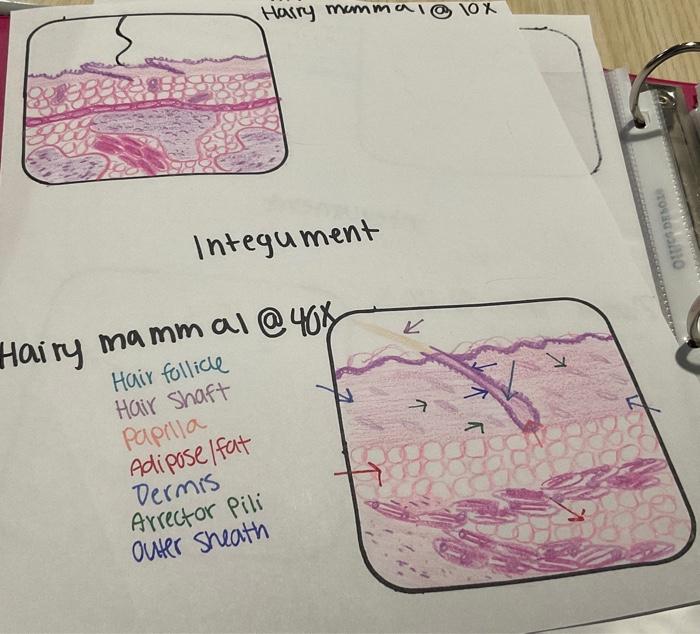 Hairy mammal @ 10X
Integument
Hairy mammal @ 40X
Hair follicle
Hair Shaft
Papilla
Adipose/fat
Dermis
Arrector Pili
Outer Sheath